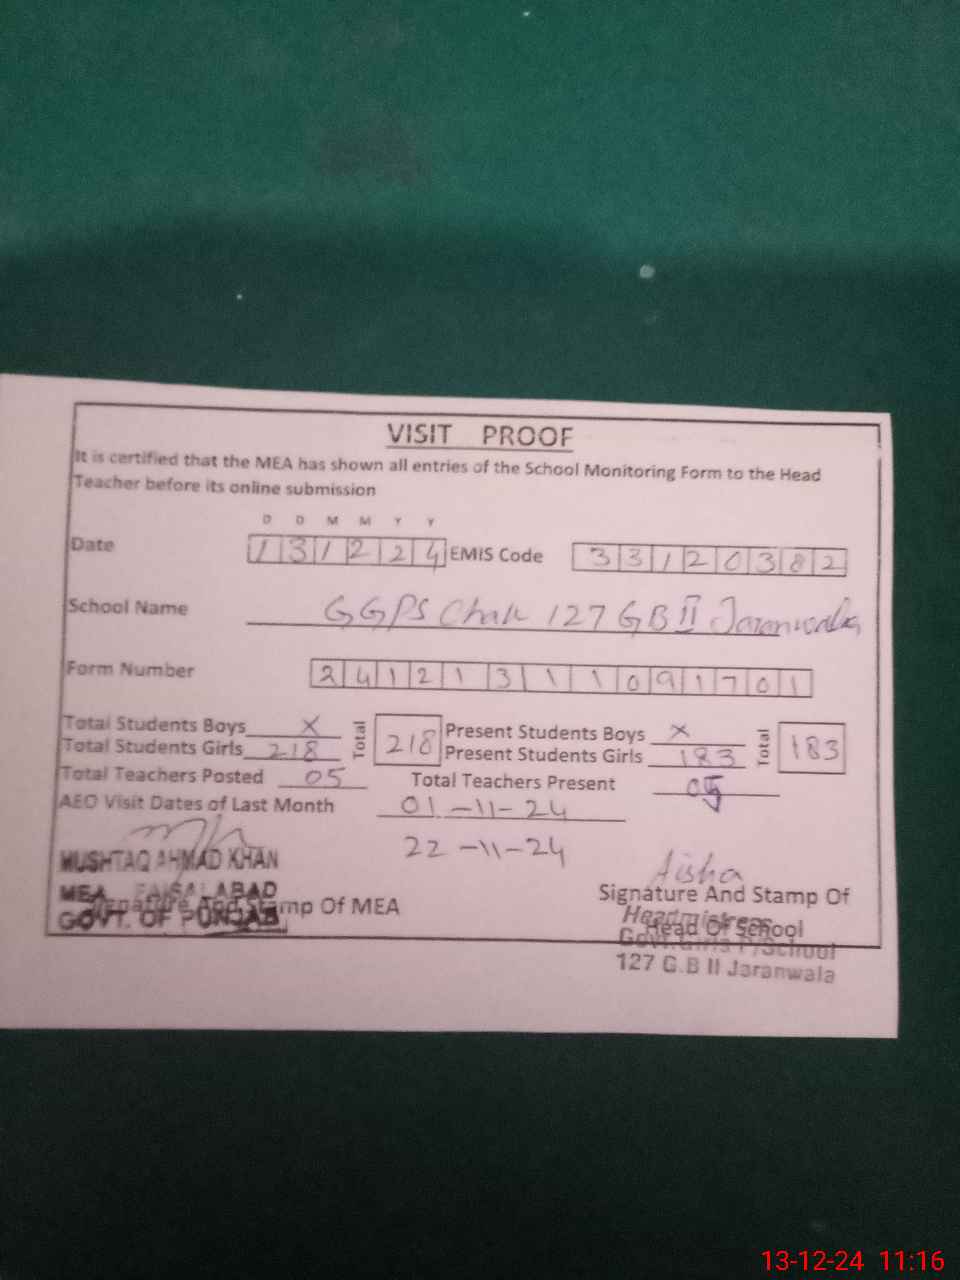 VISIT PROOF
It is certified that the MEA has shown all entries of the School Monitoring Form to the Head
Teacher before its online submission
D D M M Y Y
Date 131224 EMIS Code 33120382
School Name GGPS Chak 127 GB II Jaranwala
Form Number 24121311091701
Total Students Boys X Total 218 Present Students Boys X Total 183
Total Students Girls 218 Present Students Girls 183
Total Teachers Posted 05 Total Teachers Present 05
AEO Visit Dates of Last Month 01-11-24
22-11-24
MUSHTAQ AHMAD KHAN
MEA FAISALABAD
GOVT. OF PUNJAB
Signature And Stamp Of MEA
Aisha
Signature And Stamp Of
Headmistress
Head Of School
Govt. Girls P/School
127 G.B II Jaranwala
13-12-24 11:16